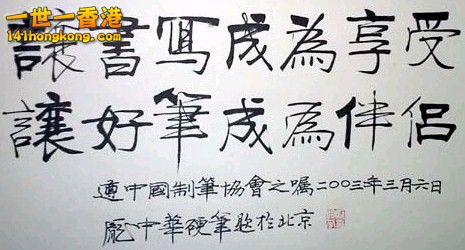 一世一香港
141hongkong.com
讓書寫成為享受
讓好筆成為伴侣
遵中國制筆協會之嘱二〇〇三年三月六日
龐中華硬筆題於北京